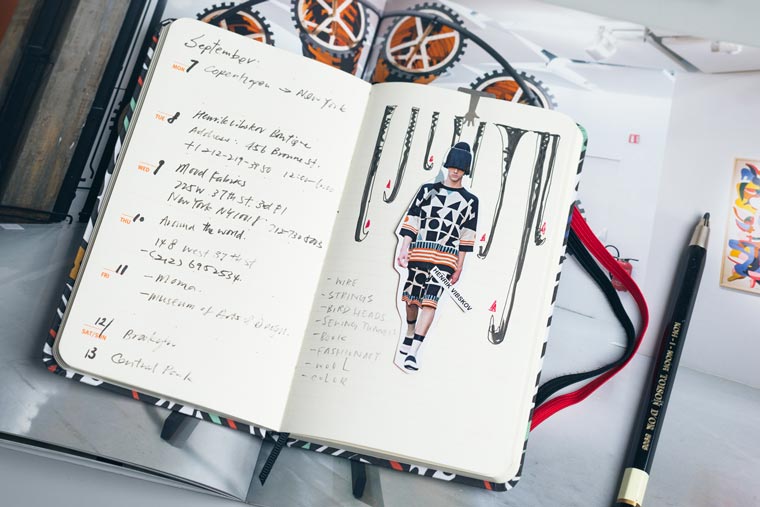 September
MON 7 Copenhagen → New York
TUE 8 Henrik Vibskov Boutique
Address: 456 Broome st.
+1 212-219-
WED 9 Mood Fabrics
225 W 37th St. 3rd Fl
New York NY
THU 10 Around the world.
148 West 37 th
(212) 6952534
FRI 11 - Moma
- Museum of Arts & Design
12/ SAT/SUN Brooklyn
13 Central Park
- WIRE
- STRINGS
- BIRD HEADS
- BOOK
- FASHION ART
- WOOL
- COLOR
HENRIK VIBSKOV
KOH-I-NOOR TOISON D'OR